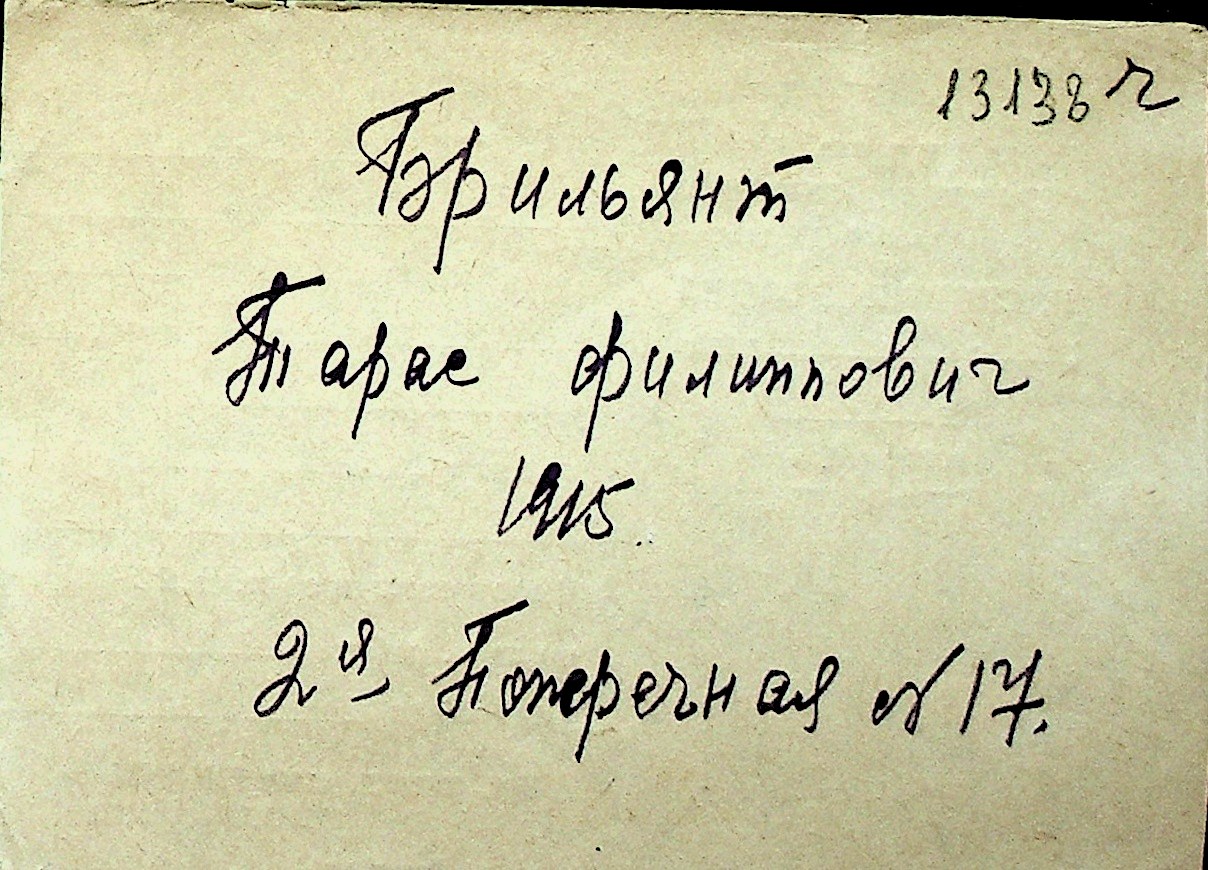 13138 ч
Брильянт
Тарас Филиппович
1915.
2я Поперечная №17.